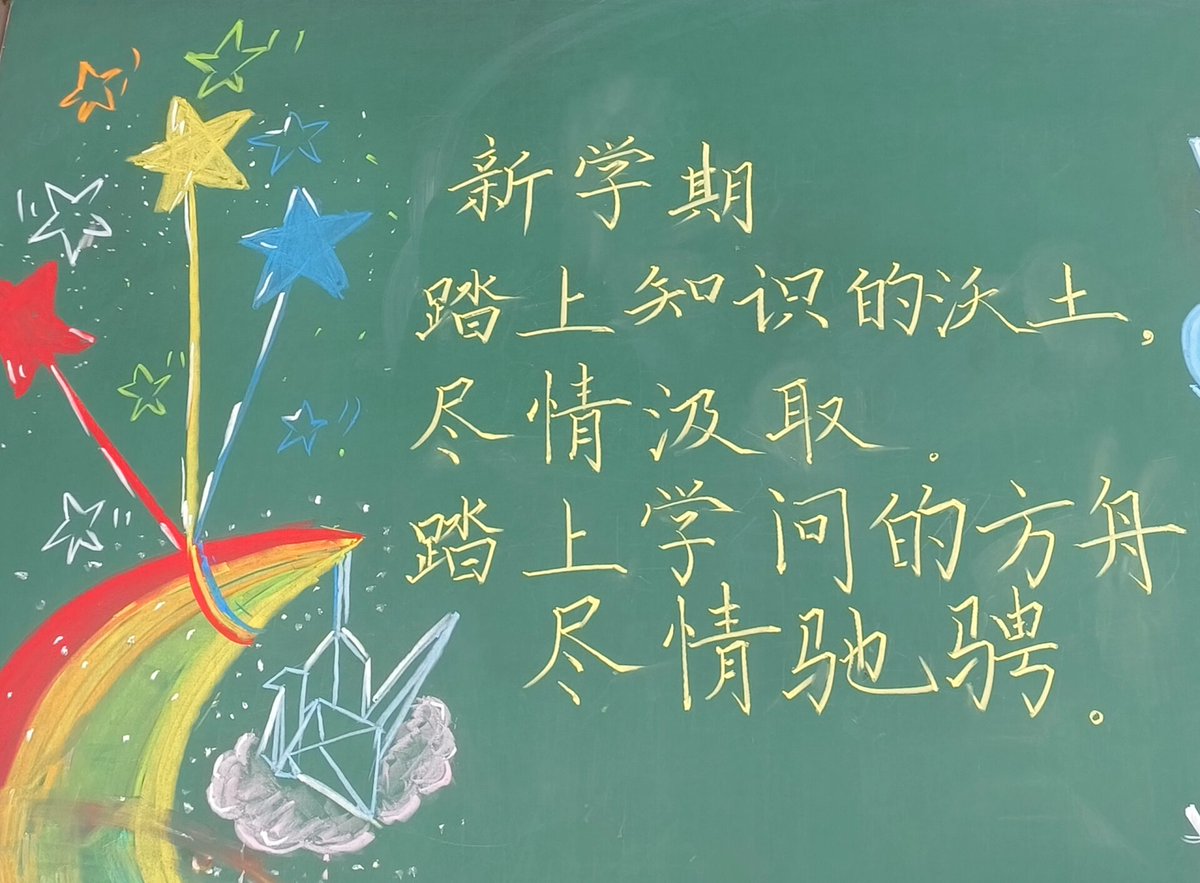 新学期
踏上知识的沃土,
尽情汲取。
踏上学问的方舟
尽情驰骋。